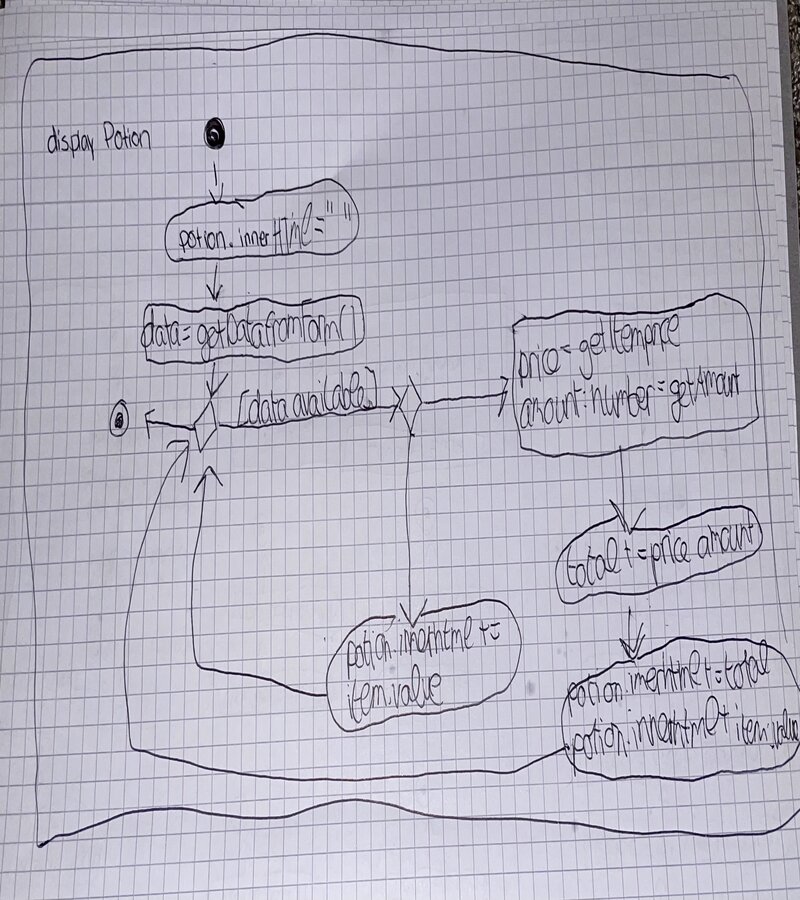 display Potion
potion.innerHTMl=" "
data=getDatafromForm()
[data available]
price=getItemprice
amount:number=getAmount
total+=price amount
potion.innerhtml+=
item.value
potion.innerhtml+=total
potion.innerhtml+ item.value